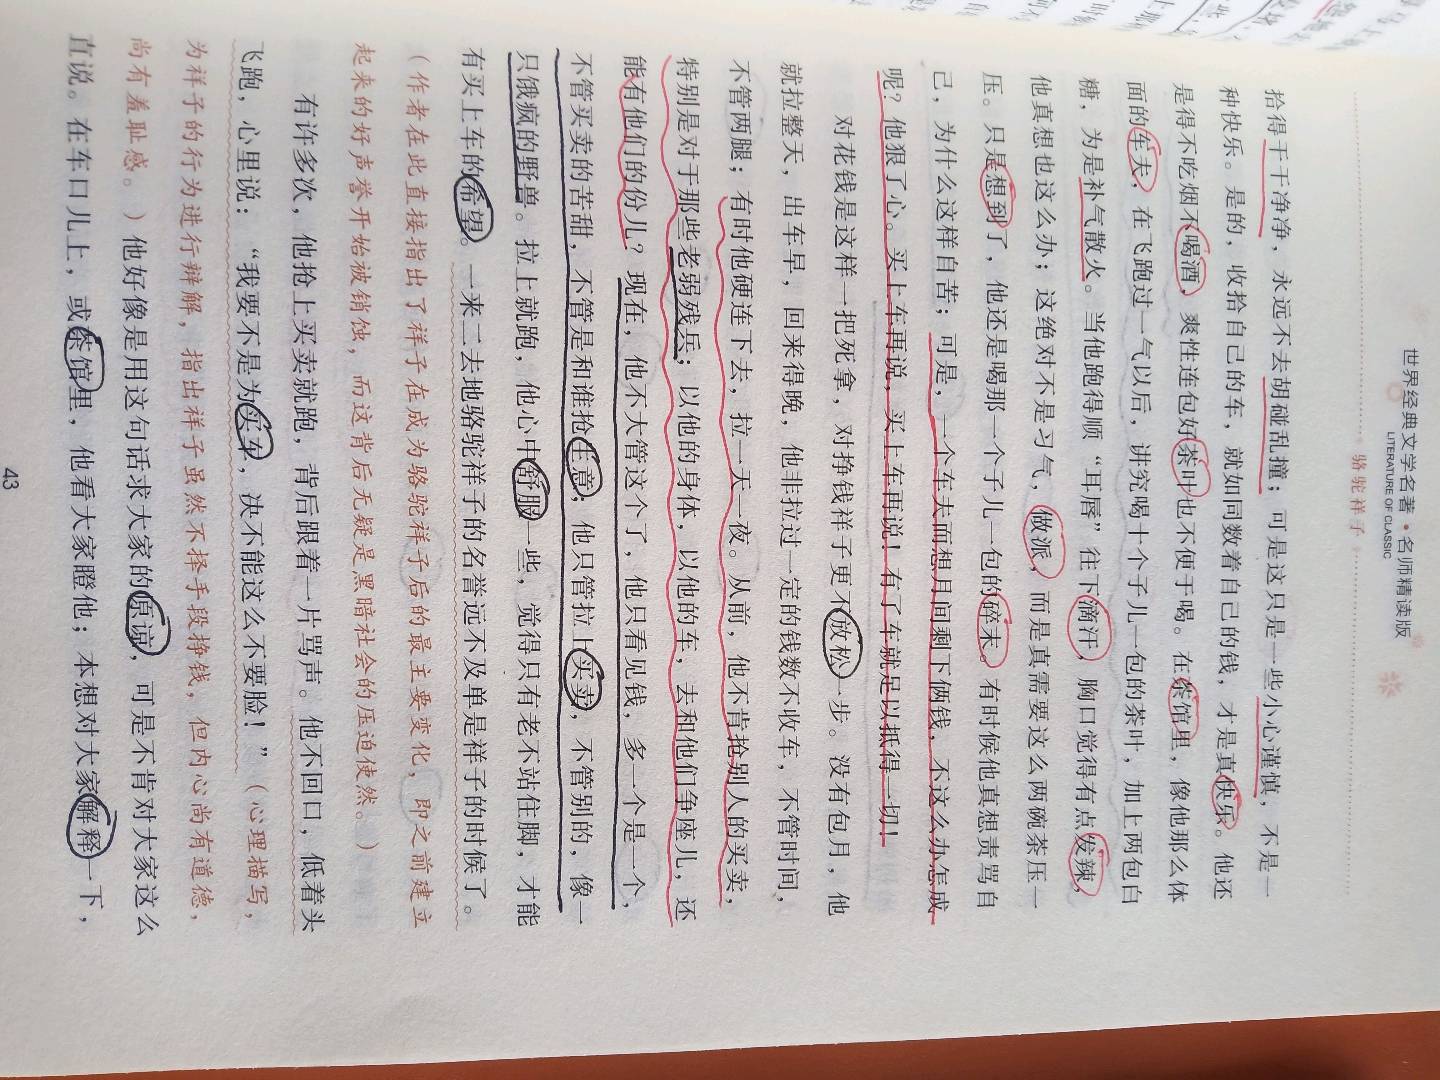 世界经典文学名著·名师精读版
LITERATURE OF CLASSIC
骆驼祥子
拾得干干净净，永远不去胡碰乱撞；可是这只是一些小心谨慎，不是一
种快乐。是的，收拾自己的车，就如同数着自己的钱，才是真快乐。他还
是得不吃烟不喝酒，爽性连包好茶叶也不便于喝。在茶馆里，像他那么体
面的车夫，在飞跑过一气以后，讲究喝十个子儿一包的茶叶，加上两包白
糖，为是补气散火。当他跑得顺“耳唇”往下滴汗，胸口觉得有点发辣，
他真想也这么办；这绝对不是习气，做派，而是真需要这么两碗茶压一
压。只是想到了，他还是喝那一个子儿一包的碎末。有时候他真想责骂自
己，为什么这样自苦；可是，一个车夫而想月间剩下俩钱，不这么办怎成
呢？他狠了心。买上车再说，买上车再说！有了车就足以抵得一切！
对花钱是这样一把死拿，对挣钱祥子更不放松一步。没有包月，他
就拉整天，出车早，回来得晚，他非拉过一定的钱数不收车，不管时间，
不管两腿；有时他硬连下去，拉一天一夜。从前，他不肯抢别人的买卖，
特别是对于那些老弱残兵；以他的身体，以他的车，去和他们争座儿，还
能有他们的份儿？现在，他不大管这个了，他只看见钱，多一个是一个，
不管买卖的苦甜，不管是和谁抢生意；他只管拉上买卖，不管别的，像一
只饿疯的野兽。拉上就跑，他心中舒服一些，觉得只有老不站住脚，才能
有买上车的希望。一来二去地骆驼祥子的名誉远不及单是祥子的时候了。
（作者在此直接指出了祥子在成为骆驼祥子后的最主要变化，即之前建立
起来的好声誉开始被销蚀，而这背后无疑是黑暗社会的压迫使然。）
有许多次，他抢上买卖就跑，背后跟着一片骂声。他不回口，低着头
飞跑，心里说：“我要不是为买车，决不能这么不要脸！”（心理描写，
为祥子的行为进行辩解，指出祥子虽然不择手段挣钱，但内心尚有道德，
尚有羞耻感。）他好像是用这句话求大家的原谅，可是不肯对大家这么
直说。在车口儿上，或茶馆里，他看大家瞪他；本想对大家解释一下，
43